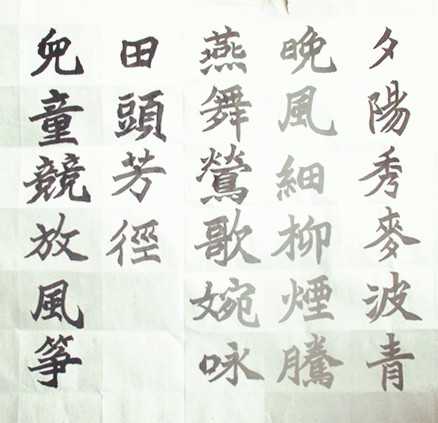 夕陽秀麥波青
晚風細柳煙騰
燕舞鶯歌婉咏
田頭芳徑
兒童競放風箏